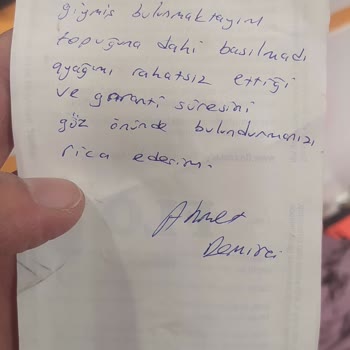 giymiş bulunmaktayım
topuğuna dahi basılmadı
ayağımı rahatsız ettiği
ve garanti süresini
göz önünde bulundurmanızı
rica ederim.
Ahmet
Demirci